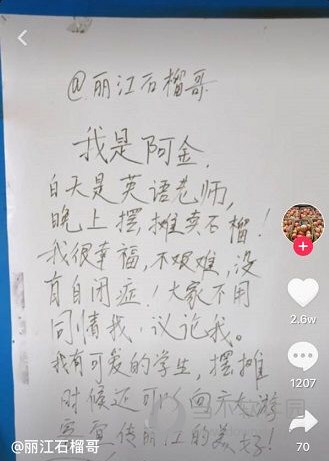 @丽江石榴哥
我是阿金.
白天是英语老师,
晚上摆摊卖石榴!
我很幸福,不艰难,没
有自闭症!大家不用
同情我,议论我。
我有可爱的学生,摆摊
时候还可以向 游
客宣传丽江的美好!
2.6w
1207
70
@丽江石榴哥